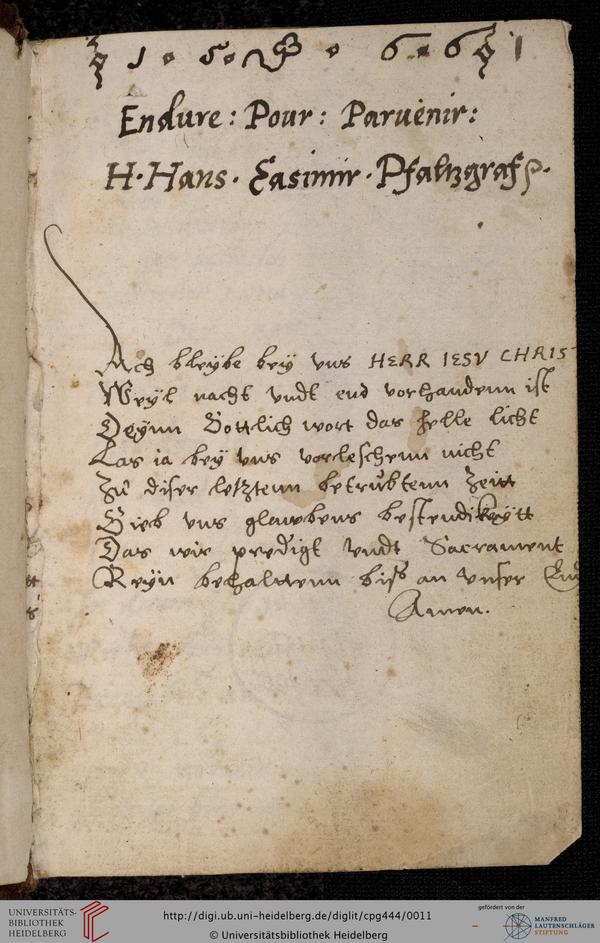 1 · 5 · · 6 · 6 1
Endure : Pour : Paruenir :
H · Hans · Casimir · Pfaltzgraf
Ach bleybe bey vns HERR IESV CHRIS
Weyl nacht vndt end vorhandenn ist
Deynn Gottlich wort das helle licht
Las ia bey vns vorleschenn nicht
Zu diser letztenn betrubtenn Zeitt
Gieb vns glawbens bestendikeytt
Das wir predigt vndt Sacrament
Reyn behalttenn biss an vnser
Amen.
UNIVERSITÄTS-
BIBLIOTHEK
HEIDELBERG
http://digi.ub.uni-heidelberg.de/diglit/cpg444/0011
© Universitätsbibliothek Heidelberg
gefördert von der
MANFRED
LAUTENSCHLÄGER
STIFTUNG